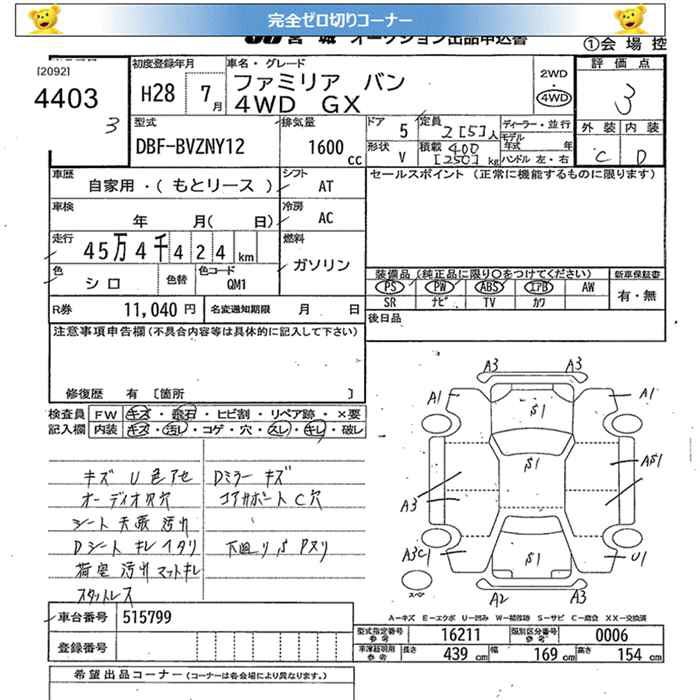 完全ゼロ切りコーナー
JU 宮城 オークション出品申込書
①会場控
[2092]
4403
3
初度登録年月
H28 7月
車名・グレード
ファミリア バン
4WD GX
2WD
4WD
評価点
3
外装 内装
C D
型式
DBF-BVZNY12
排気量
1600cc
ドア 5
定員 2[5]人
形状 V
積載 400[250]kg
ディーラー・並行
モデル年式 年式
ハンドル 左・右
車歴
自家用・(もとリース)
シフト AT
セールスポイント (正常に機能するものに限ります)
車検
年 月( 日)
冷房 AC
走行
45万4千424km
燃料
ガソリン
色 シロ
色替
色コード QM1
装備品 (純正品に限り○をつけてください)
新車保証書
PS PW ABS エアB AW
SR ナビ TV カワ
有・無
R券 11,040円
名変通知期限 月 日
後日品
注意事項申告欄 (不具合内容等は具体的に記入して下さい)
修復歴 有 [箇所 ]
検査員記入欄
FW キズ・飛石・ヒビ割・リペア跡・×要
内装 キズ・汚レ・コゲ・穴・スレ・キレ・破レ
キズ U 色アセ
オーディオ欠穴
シート 天張 汚れ
Dシート キレ イタリ
荷室 汚れ マットキレ
スタットレス
Dミラー キズ
コアサポート C 穴
下廻り S Pヌリ
A3 A3
A1 A1
S1
S1
A3
AS1
A3C1
S1
U1
スペア
A2 A3
A-キズ E-エクボ U-凹み W-補修跡 S-サビ C-腐食 XX-交換済
車台番号 515799
登録番号
型式指定番号 参考 16211
類別区分番号 参考 0006
車検証明用 参考
長さ 439cm 幅 169cm 高さ 154cm
希望出品コーナー (コーナーは各会場により異なります。)